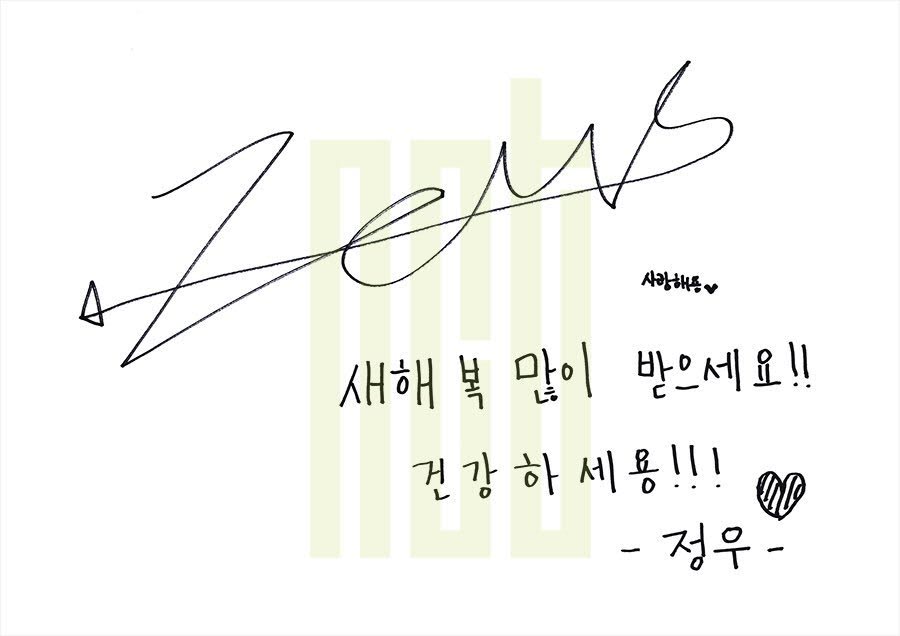 Zeus
사랑해뜽♥
새해 복 많이 받으세요!!
건강하세용!!!
- 정우 -